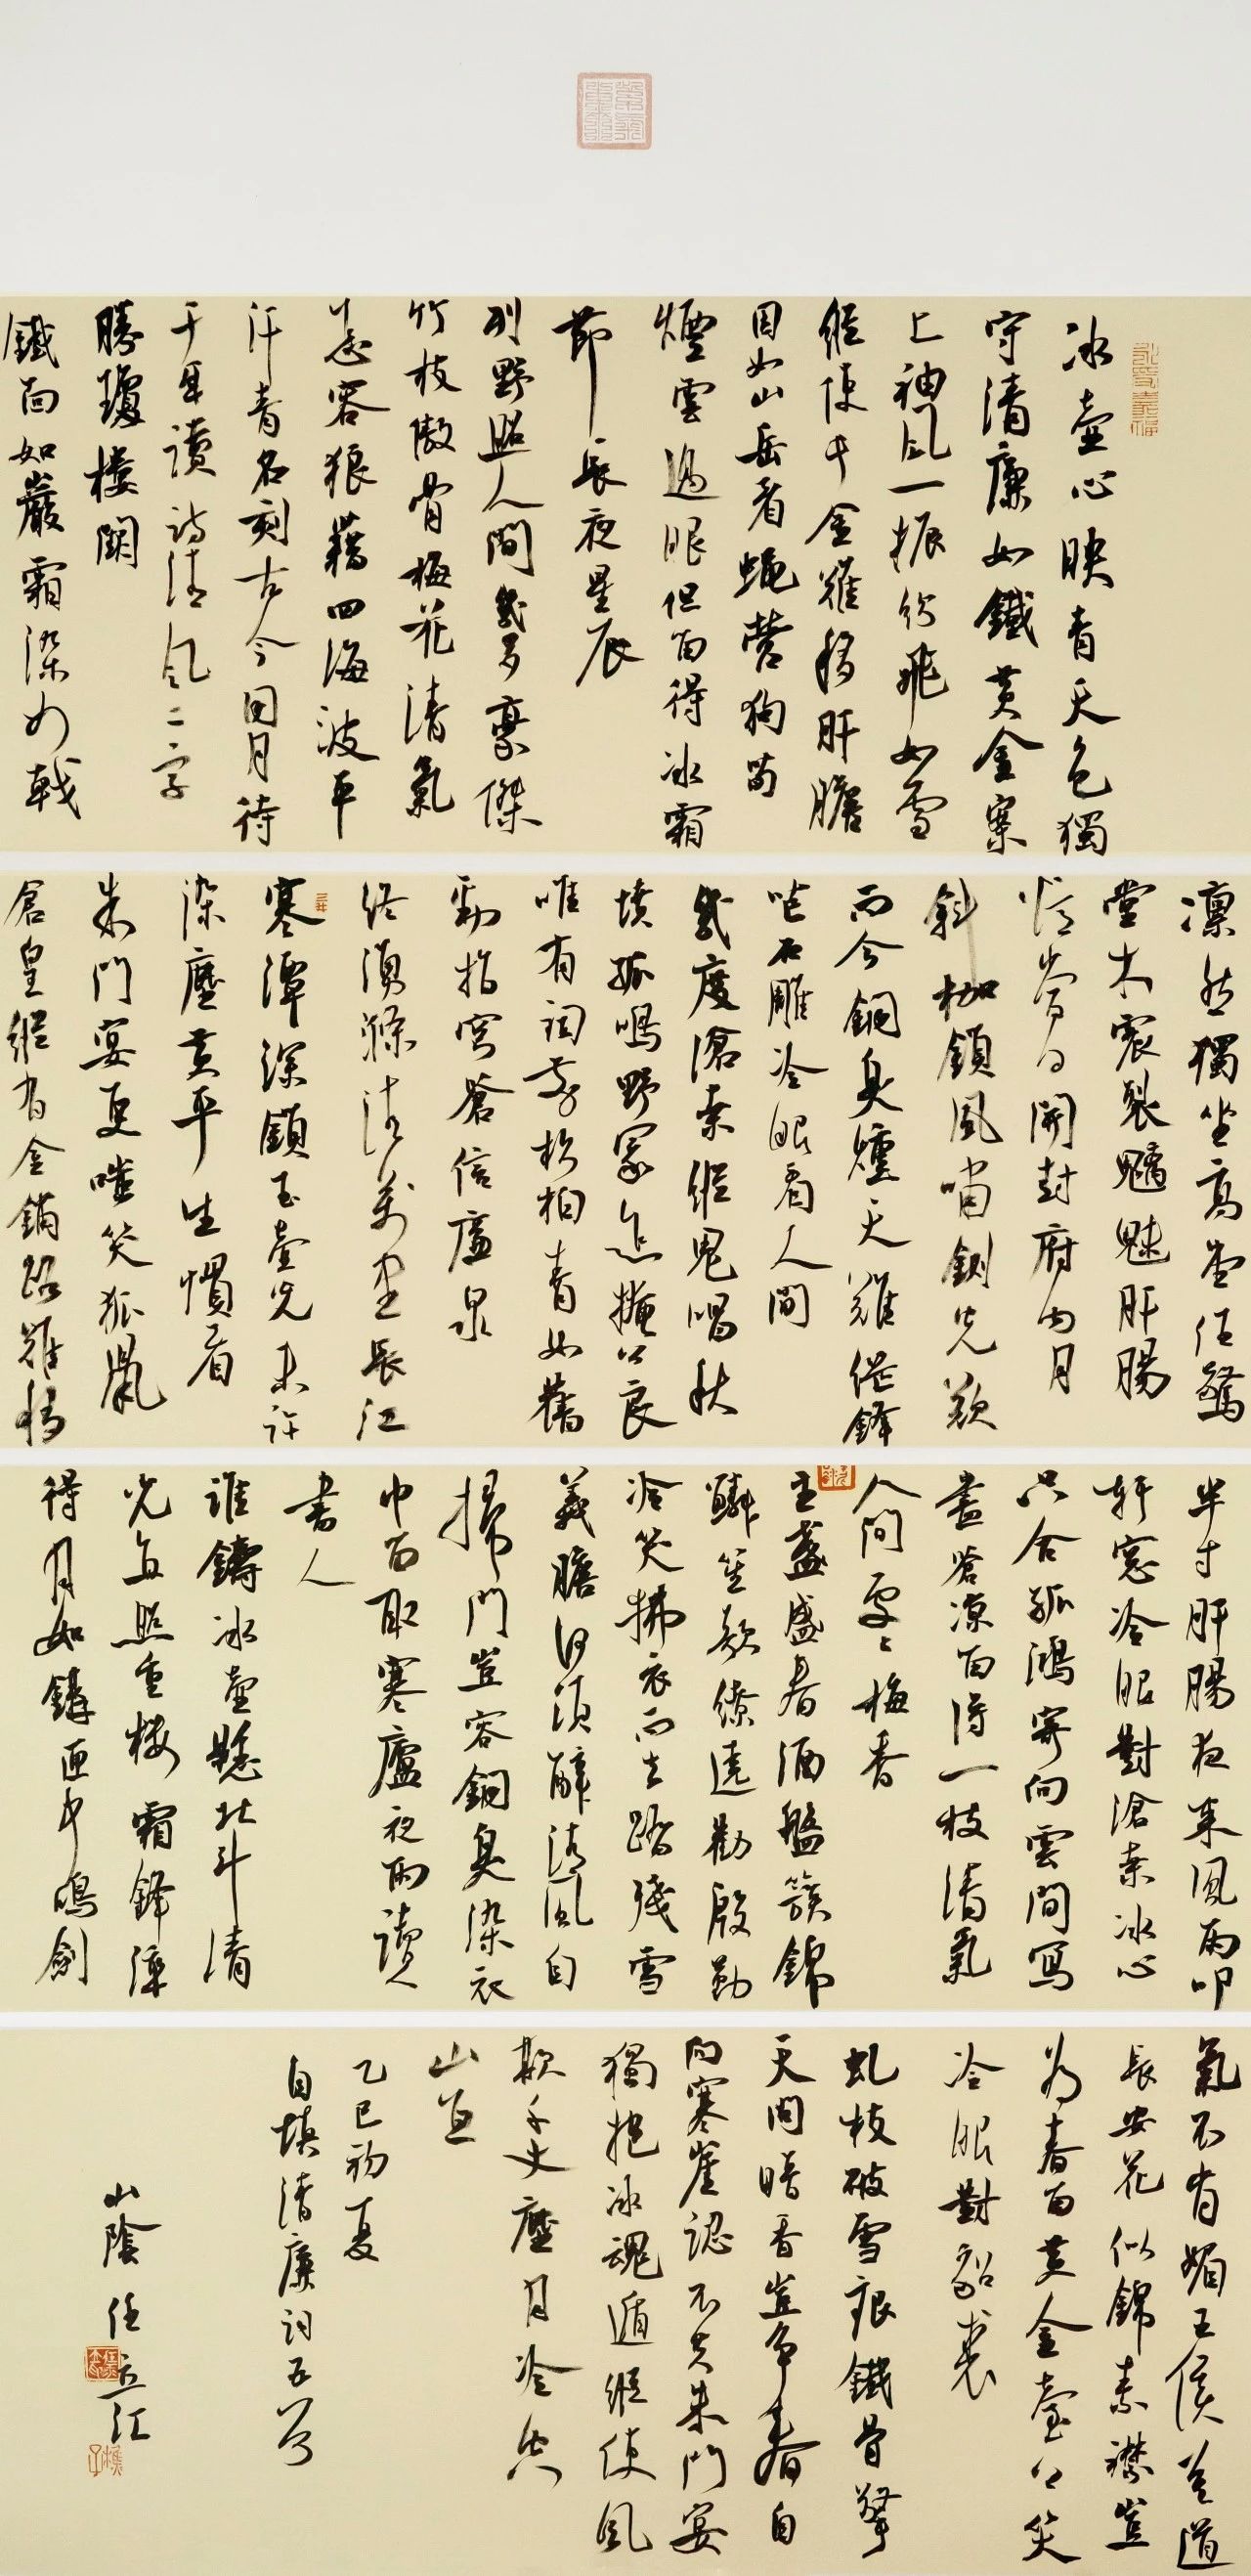 冰壺心映青天色獨
守清廉如鐵黃金寨
上神風一振紛飛如雪
縱使千金難移肝膽
固如山岳看蠅營狗苟
煙雲過眼但留得冰霜
節長夜星辰
列野照人間幾多豪傑
竹枝傲骨梅花清氣
豈容狼藉四海波平
汗青名刻古今同月待
千年讀詩清風二字
勝瓊樓闕
鐵面如嚴霜染
凜然獨坐高堂伍驚
堂木震裂魑魅肝腸
當日開封府內月
斜枷鎖風嘯鍘光歎
而今銅臭燻天難催鋒
芒石雕冷眼看人間
幾度滄桑縱鬼唱秋
墳孤鳴野冢怎掩公良
唯有詞章松柏青如舊
勁指穹蒼信廉泉
終須滌清萬里長江
寒潭深鎖玉壺光未許
染塵黃平生慣看
朱門宴更嗤笑狐鼠
倉皇縱有金銷路難移
半寸肝腸夜來風雨叩
軒窓冷眼對滄桑冰心
只合孤鴻寄向雲間寫
盡蒼涼留得一枝清氣
人間雯雯梅香
玉盞盛春酒盤簇錦
鱗笙歌繚遶勸殷勤
冷笑拂衣而去踏殘雪
義膽何須醉清風自
掃門豈容銅臭染衣
巾留取寒廬夜雨讀
書人
誰鑄冰壺懸北斗清
光直照重樓霜鋒淬
得月如鉤匣中鳴劍
氣不肯媚王侯莫道
長安花似錦素襟豈
為春留黃金臺上笑
冷眼對貂裘
虬枝破雪痕鐵骨擎
天問暗香豈爭春自
向寒崖認不共朱門宴
獨抱冰魂遁縱使風
欺千丈塵月冷空
山直
乙巳初夏
自填清廉詞五首
山陰任立江